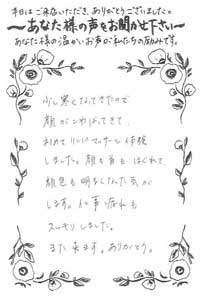 本日はご来店いただき、ありがとうございました。
〜あなた様の声をお聞かせ下さい〜
あなた様の温かいお声が私たちの励みです。
少し寒くなってきたので
顔がこわばってきて、
初めてリンパマッサージを体験
しました。顔も首もほぐれて
顔色も明るくなった気が
します。仕事の疲れも
スッキリしました。
また来ます。ありがとう。